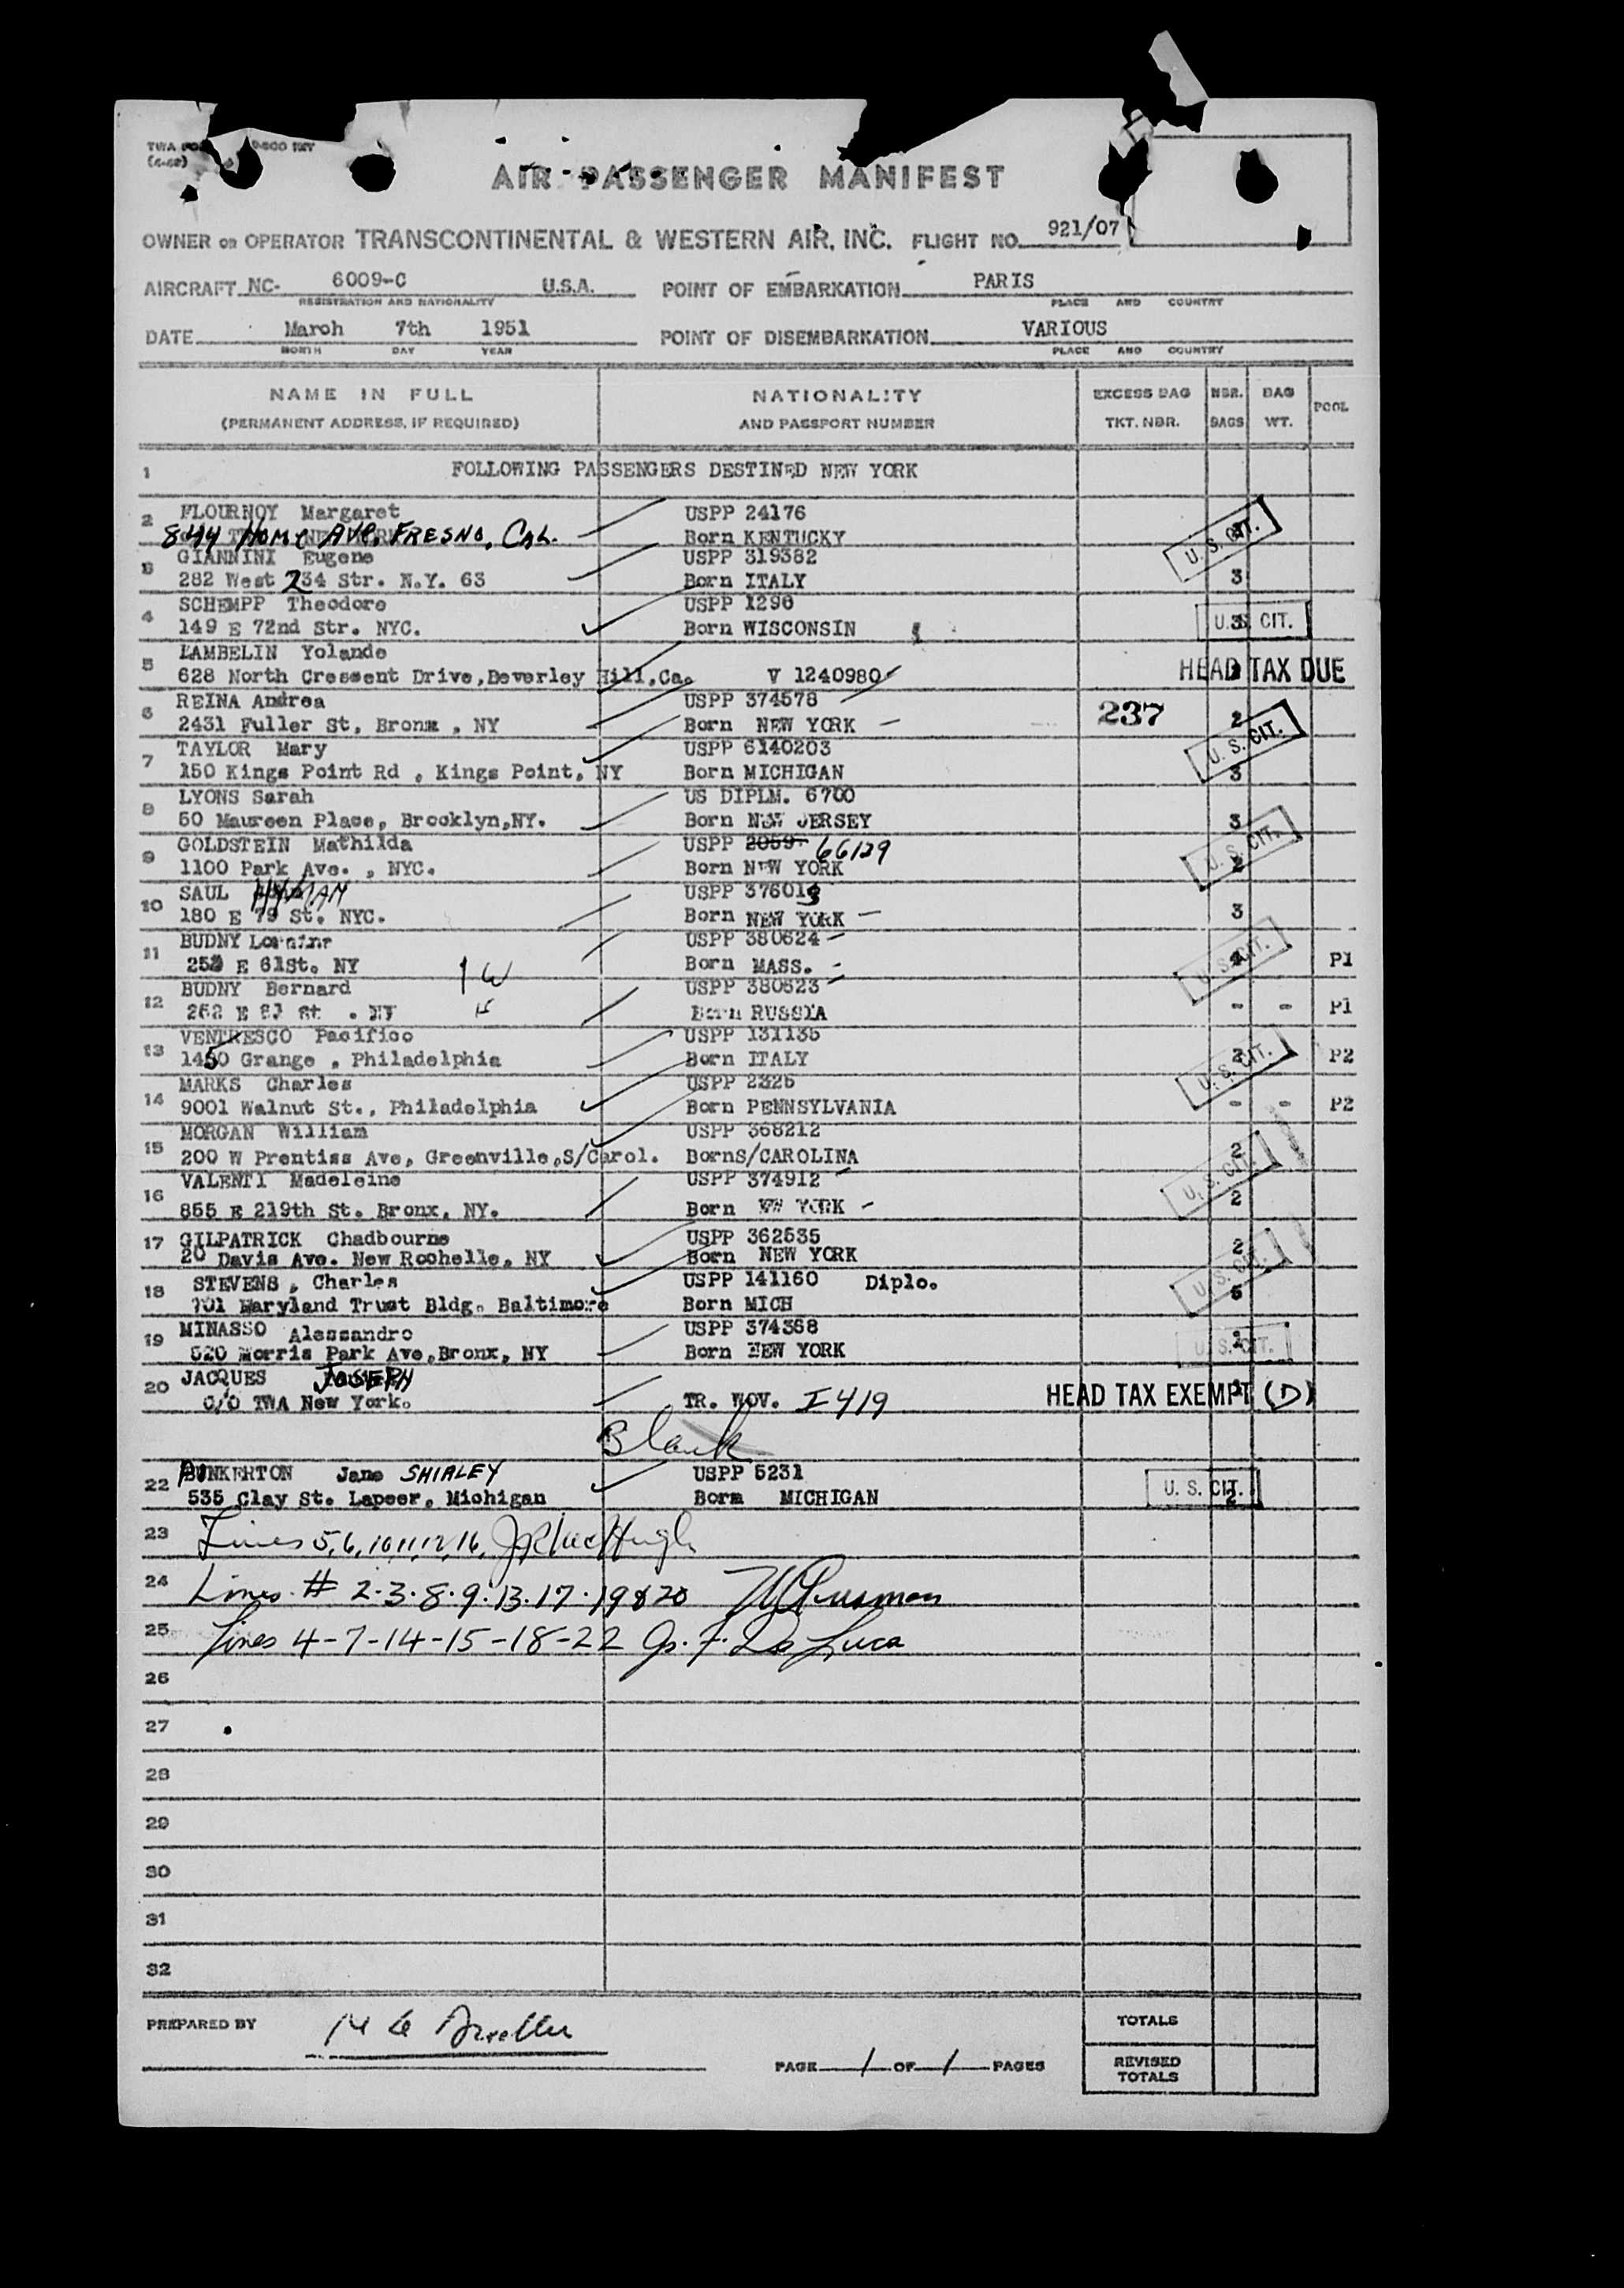 AIR PASSENGER MANIFEST
OWNER OR OPERATOR TRANSCONTINENTAL & WESTERN AIR, INC. FLIGHT NO. 921/07
AIRCRAFT NC- 6009-C U.S.A. POINT OF EMBARKATION PARIS
REGISTRATION AND NATIONALITY PLACE AND COUNTRY
DATE March 7th 1951 POINT OF DISEMBARKATION VARIOUS
MONTH DAY YEAR PLACE AND COUNTRY
NAME IN FULL NATIONALITY EXCESS BAG NBR. BAG POOL
(PERMANENT ADDRESS, IF REQUIRED) AND PASSPORT NUMBER TKT. NBR. BAGS WT.
1 FOLLOWING PASSENGERS DESTINED NEW YORK
2 FLOURNOY Margaret USPP 24176
844 Home AVe. FRESNO, CAL. Born KENTUCKY U. S. CIT.
3 GIANNINI Eugene USPP 319382
282 West 234 Str. N.Y. 63 Born ITALY 3
4 SCHEMPP Theodore USPP 1296
149 E 72nd Str. NYC. Born WISCONSIN 3 U.S. CIT.
5 LAMBELIN Yolande
628 North Crescent Drive,Beverley Hill,Ca. V 1240980 HEAD TAX DUE
6 REINA Andrea USPP 374578 237 2
2431 Fuller St, Bronx , NY Born NEW YORK
7 TAYLOR Mary USPP 6140203 U. S. CIT.
150 Kings Point Rd , Kings Point, NY Born MICHIGAN 3
8 LYONS Sarah US DIPLM. 6700
50 Maureen Place, Brooklyn,NY. Born NEW JERSEY 3
9 GOLDSTEIN Mathilda USPP 2059 66129 U. S. CIT.
1100 Park Ave. , NYC. Born NEW YORK 2
10 SAUL HYMAN USPP 376013
180 E 79 St. NYC. Born NEW YORK 3
11 BUDNY Lorraine USPP 380624 U. S. CIT.
252 E 61St. NY 1 W Born MASS. 4 P1
12 BUDNY Bernard USPP 380623
Born RUSSIA - - P1
13 VENTRESCO Pacifico USPP 131135
1450 Grange , Philadelphia Born ITALY U. S. CIT. P2
14 MARKS Charles USPP 2325
9001 Walnut St., Philadelphia Born PENNSYLVANIA - - P2
15 MORGAN William USPP 368212
200 W Prentiss Ave, Greenville,S/Carol. BornS/CAROLINA 2
16 VALENTI Madeleine USPP 374912 U. S. CIT.
855 E 219th St. Bronx, NY. Born NEW YORK 2
17 GILPATRICK Chadbourne USPP 362535 2
20 Davis Ave. New Rochelle, NY Born NEW YORK
18 STEVENS , Charles USPP 141160 Diplo. U. S. CIT.
701 Maryland Trust Bldg. Baltimore Born MICH 5
19 MINASSO Alessandro USPP 374368
620 Morris Park Ave,Bronx, NY Born NEW YORK 2 U. S. CIT.
20 JACQUES JOSEPH
C/O TWA New York. TR. WOV. I 419 HEAD TAX EXEMPT (D)
Blank
22 PUNKERTON Jane SHIRLEY USPP 5231
535 Clay St. Lapeer, Michigan Born MICHIGAN U. S. CIT. 2
23 Lines 5, 6, 10, 11, 12, 16,
24 Lines # 2·3·8·9·13·17·19 & 20
25 Lines 4-7-14-15-18-22 G. F. De Luca
26
27
28
29
30
31
32
PREPARED BY TOTALS
PAGE 1 OF 1 PAGES REVISED TOTALS